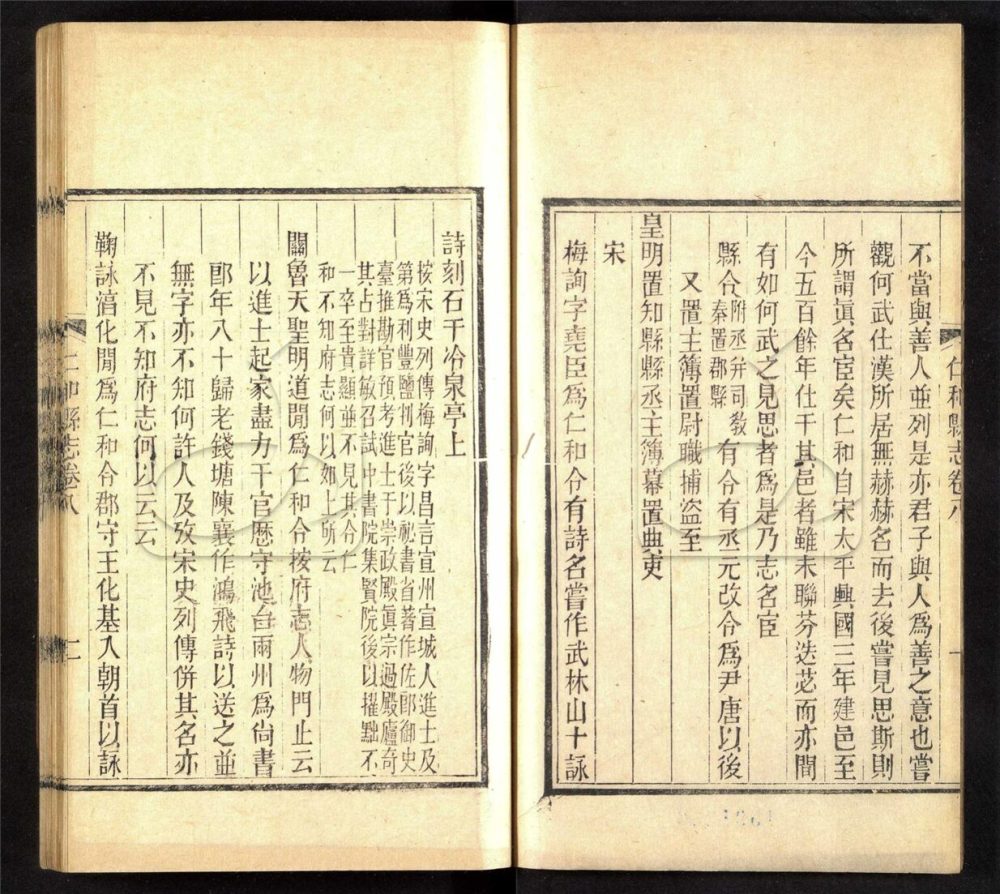 仁和縣志卷八
一
不當與善人並列是亦君子與人爲善之意也嘗
觀何武仕漢所居無赫赫名而去後嘗見思斯則
所謂眞名宦矣仁和自宋太平興國三年建邑至
今五百餘年仕于其邑者雖未聯芬迭苾而亦間
有如何武之見思者爲是乃志名宦
縣令附丞并司教
秦置郡縣
有令有丞元改令爲尹唐以後
又置主簿置尉職捕盜至
皇明置知縣縣丞主簿幕置典吏
宋
梅詢字堯臣爲仁和令有詩名嘗作武林山十詠
詩刻石于冷泉亭上
按宋史列傳梅詢字昌言宣州宣城人進士及
第爲利豐鹽判官後以祕書省著作佐郎御史
臺推勘官預考進士于崇政殿眞宗過殿廬奇
其占對詳敏召試中書院集賢院後以擢黜不
一卒至貴顯並不見其令仁
和不知府志何以如上所云
關魯天聖明道閒爲仁和令按府志人物門止云
以進士起家盡力于官歷守池台兩州爲尙書
郎年八十歸老錢塘陳襄作鴻飛詩以送之並
無字亦不知何許人及攷宋史列傳併其名亦
不見不知府志何以云云
鞠詠淳化閒爲仁和令郡守王化基入朝首以詠
仁和縣志卷八
二